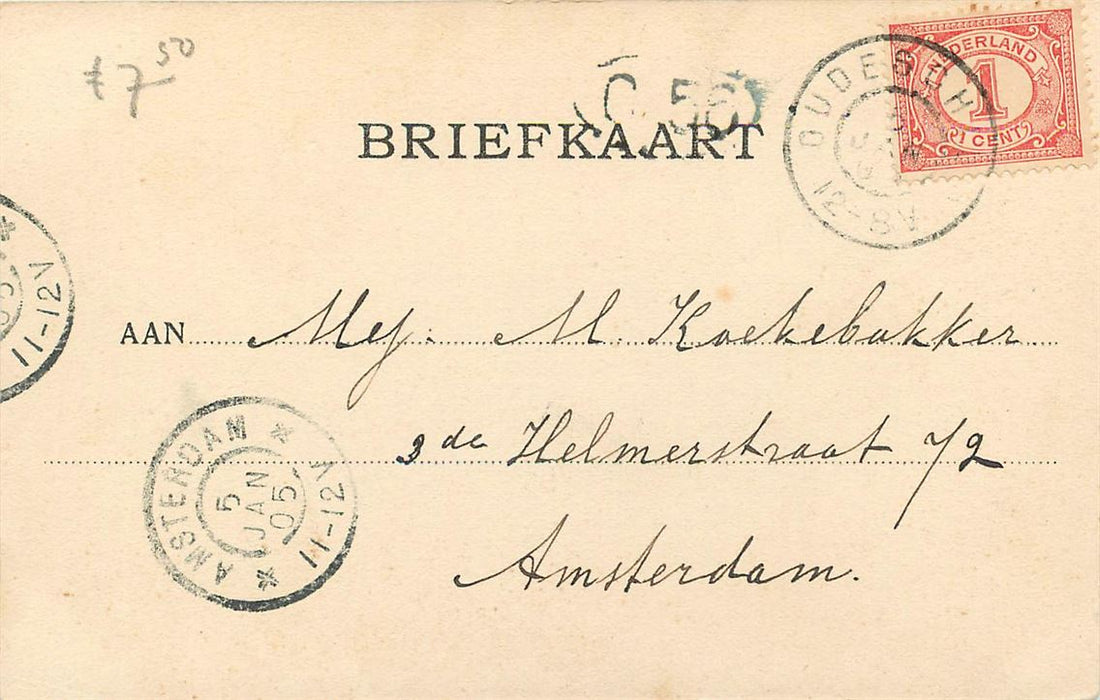 f 7 50
C. 56
BRIEFKAART
NEDERLAND
1
1 CENT
12-8V
AAN Mej. M. Koekebakker
3de Helmerstraat 72
Amsterdam.
AMSTERDAM
5 JAN 05
11-12V
05
11-12V